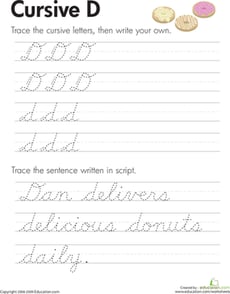 Cursive D
Trace the cursive letters, then write your own.
D D D
D D D
d d d
d d d
Trace the sentence written in script.
Dan delivers
delicious donuts
daily.
Created by:
education.com
www.education.com/worksheets